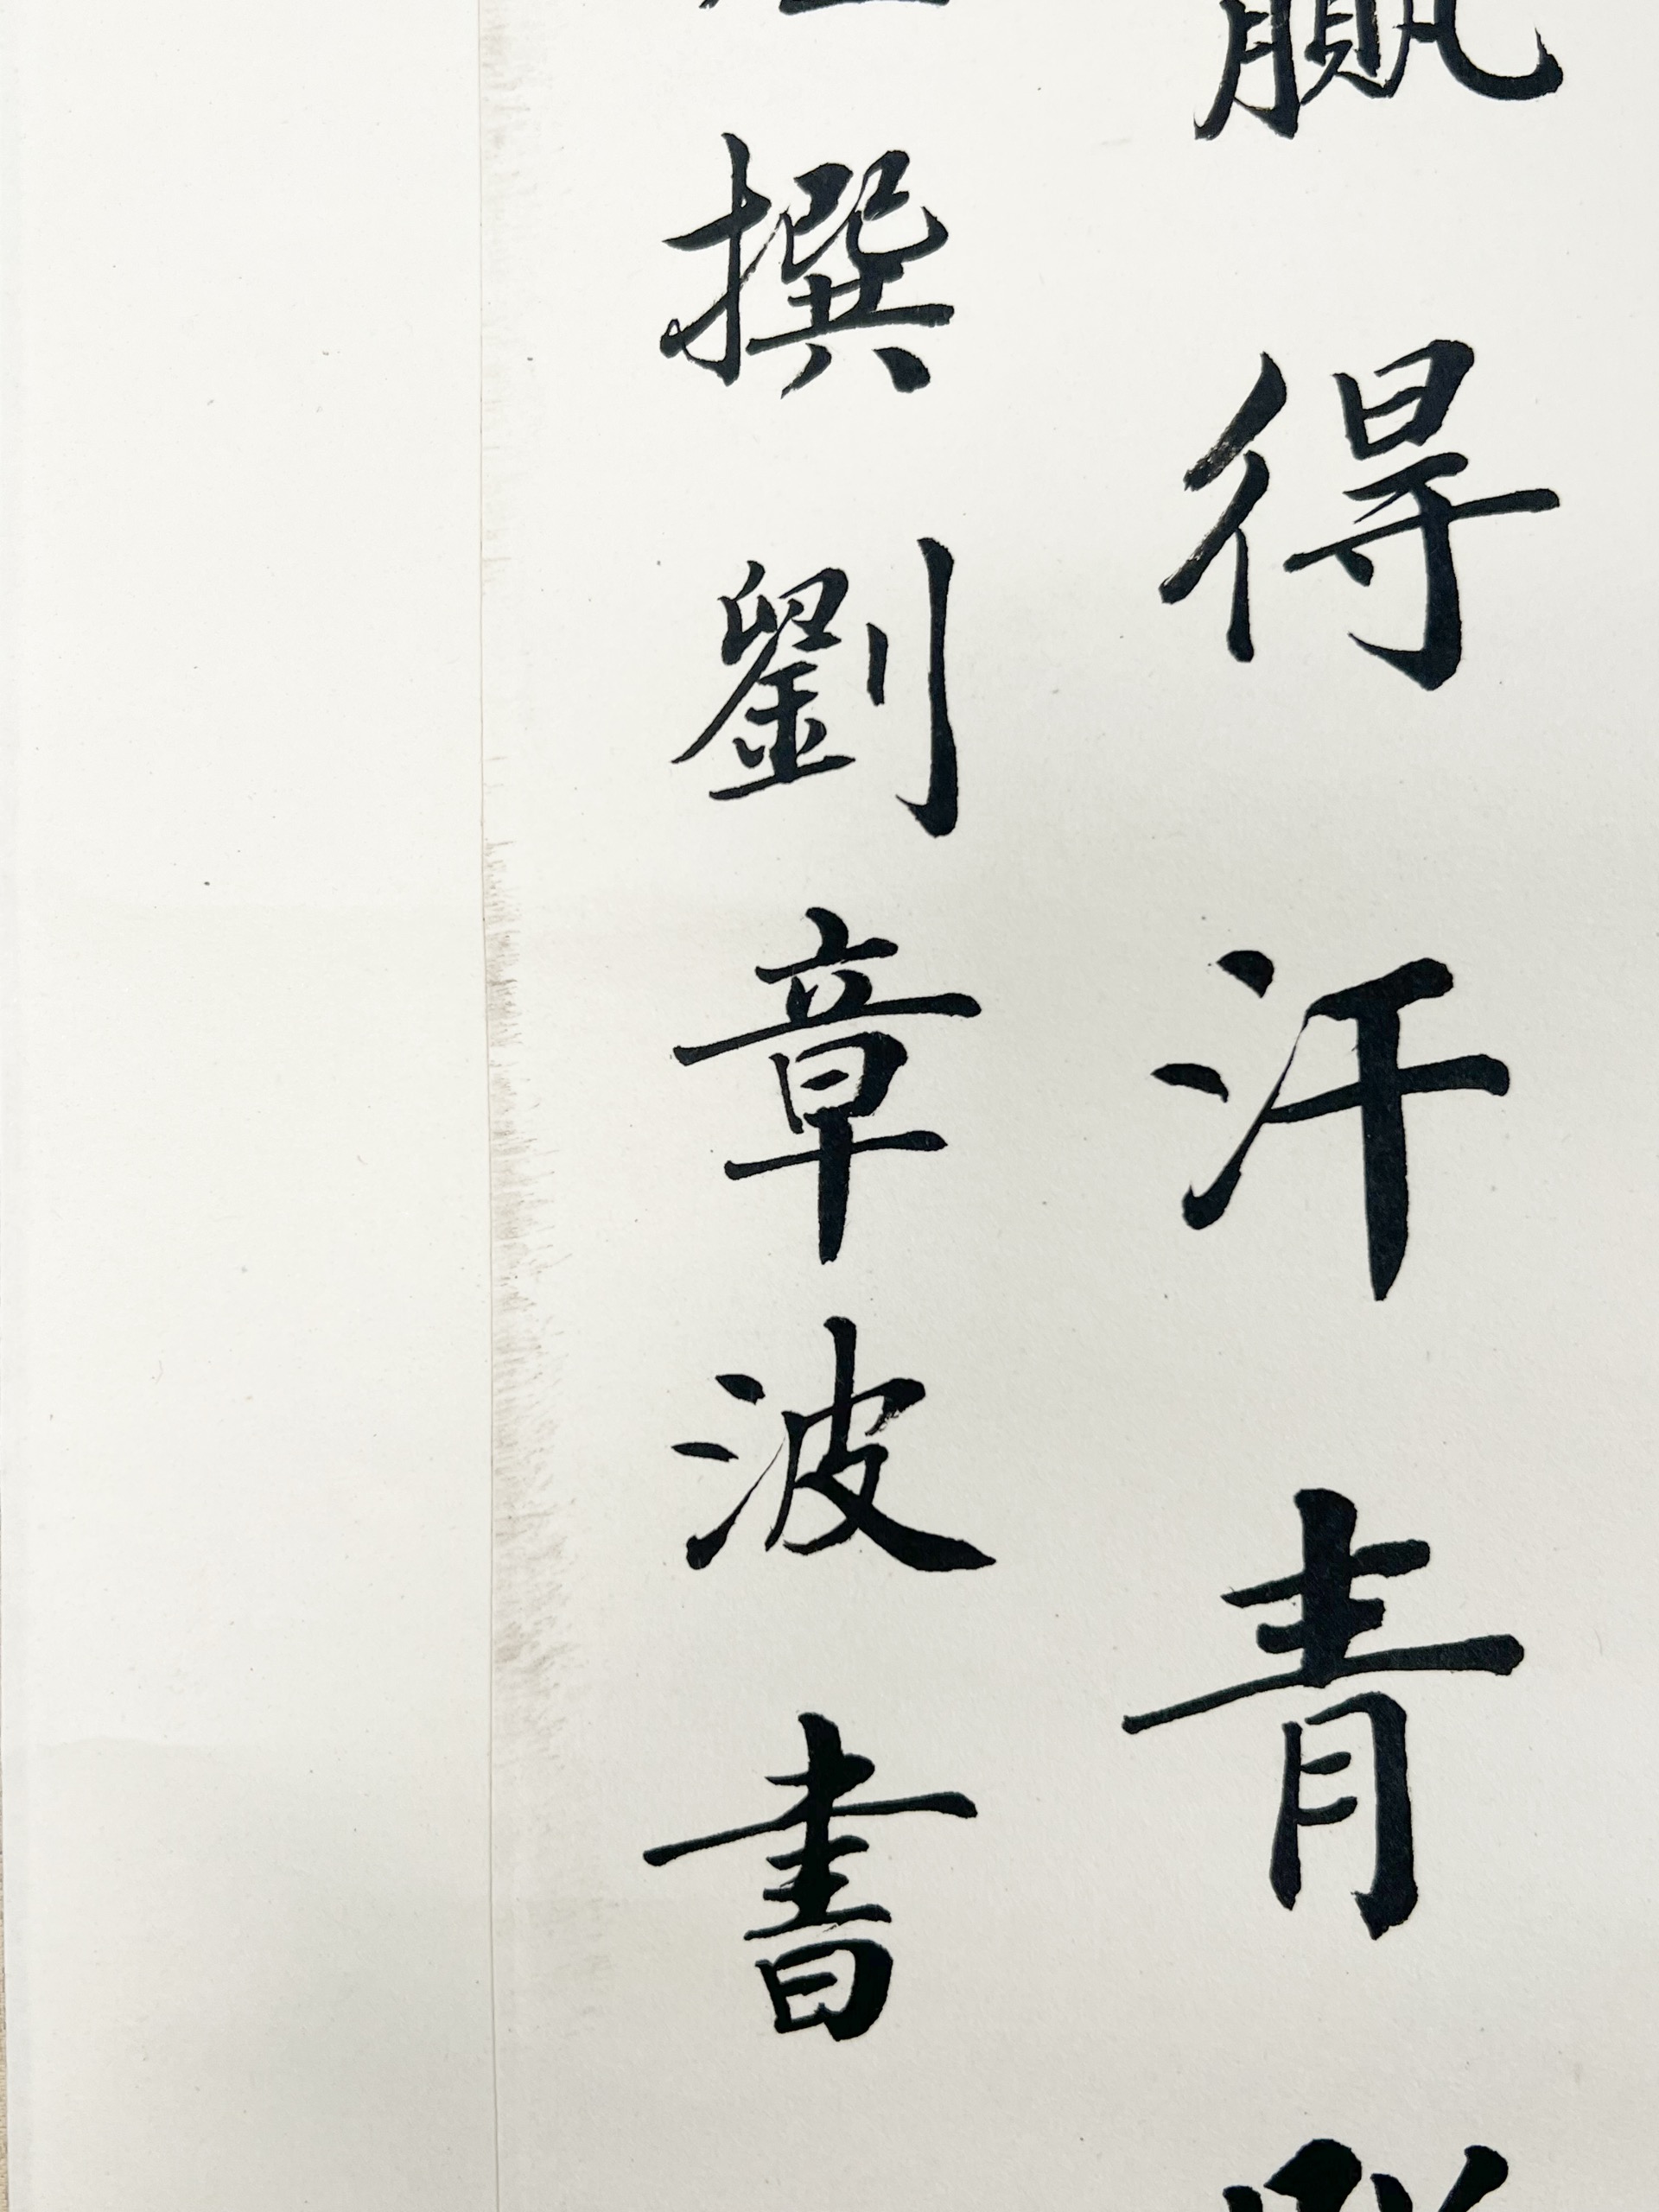 贏得汗青
撰劉章波書